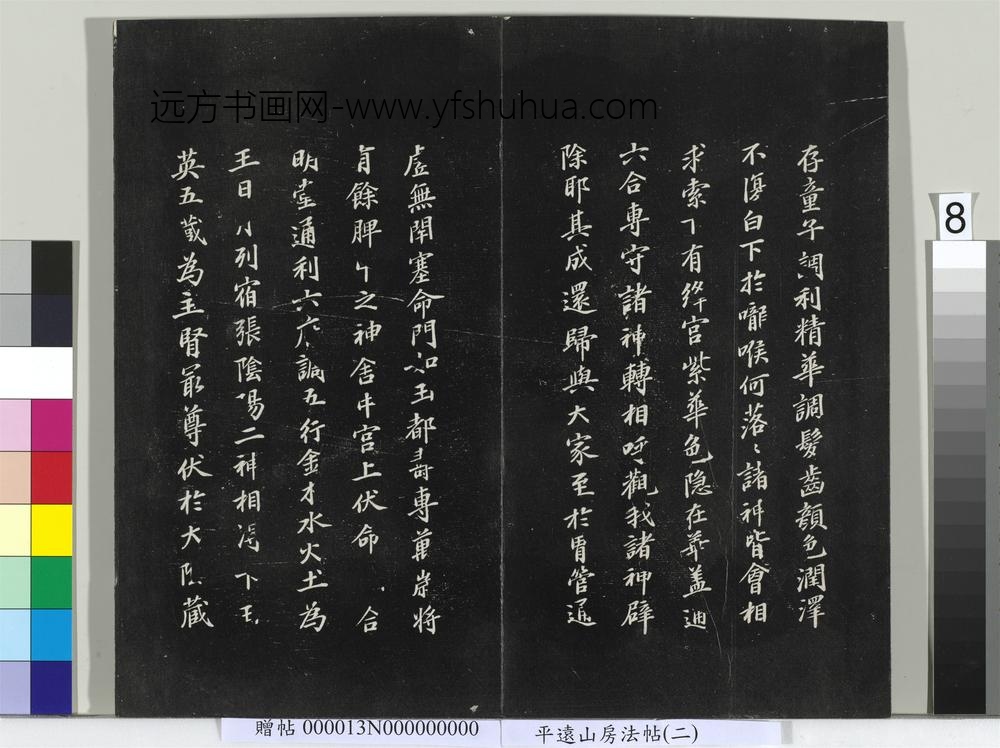 远方书画网-www.yfshuhua.com
存童子調利精華調髮齒顏色潤澤
不復白下於嚨喉何落〻諸神皆會相
求索下有絳宮紫華色隱在華蓋通
六合專守諸神轉相呼觀我諸神辟
除耶其成還歸與大家至於胃管通
虛無閉塞命門如玉都壽專萬歲將
有餘脾中之神舍中宮上伏命合
明堂通利六府調五行金木水火土為
王日月列宿張陰陽二神相得下玉
英五藏為主腎最尊伏於大陰藏
8
贈帖 000013N000000000
平遠山房法帖(二)